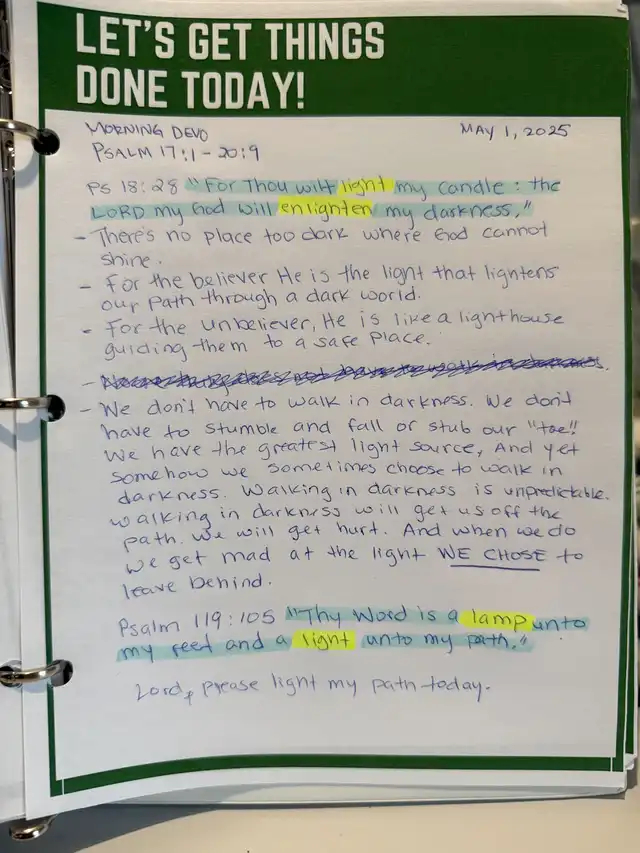 LET'S GET THINGS
DONE TODAY!
MORNING DEVO
MAY 1, 2025
PSALM 17:1-20:9
PS 18:28 "For Thou wilt light my candle: the
LORD my God will enlighten my darkness."
- There's no place too dark where God cannot
shine.
- For the believer He is the light that lightens
our path through a dark world.
- For the unbeliever, He is like a lighthouse
guiding them to a safe place.
-
- We don't have to walk in darkness. We don't
have to stumble and fall or stub our "toe!!
We have the greatest light source, And yet
somehow we sometimes choose to walk in
darkness. Walking in darkness is unpredictable.
walking in darkness will get us off the
path. We will get hurt. And when we do
we get mad at the light WE CHOSE to
leave behind.
Psalm 119:105 "Thy Word is a lamp unto
my feet and a light unto my path."
Lord, please light my path today.